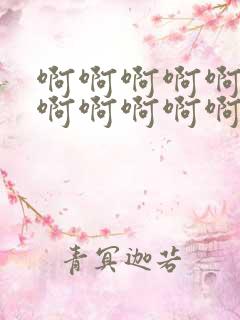 啊啊啊啊啊
啊啊啊啊啊
青冥迦若